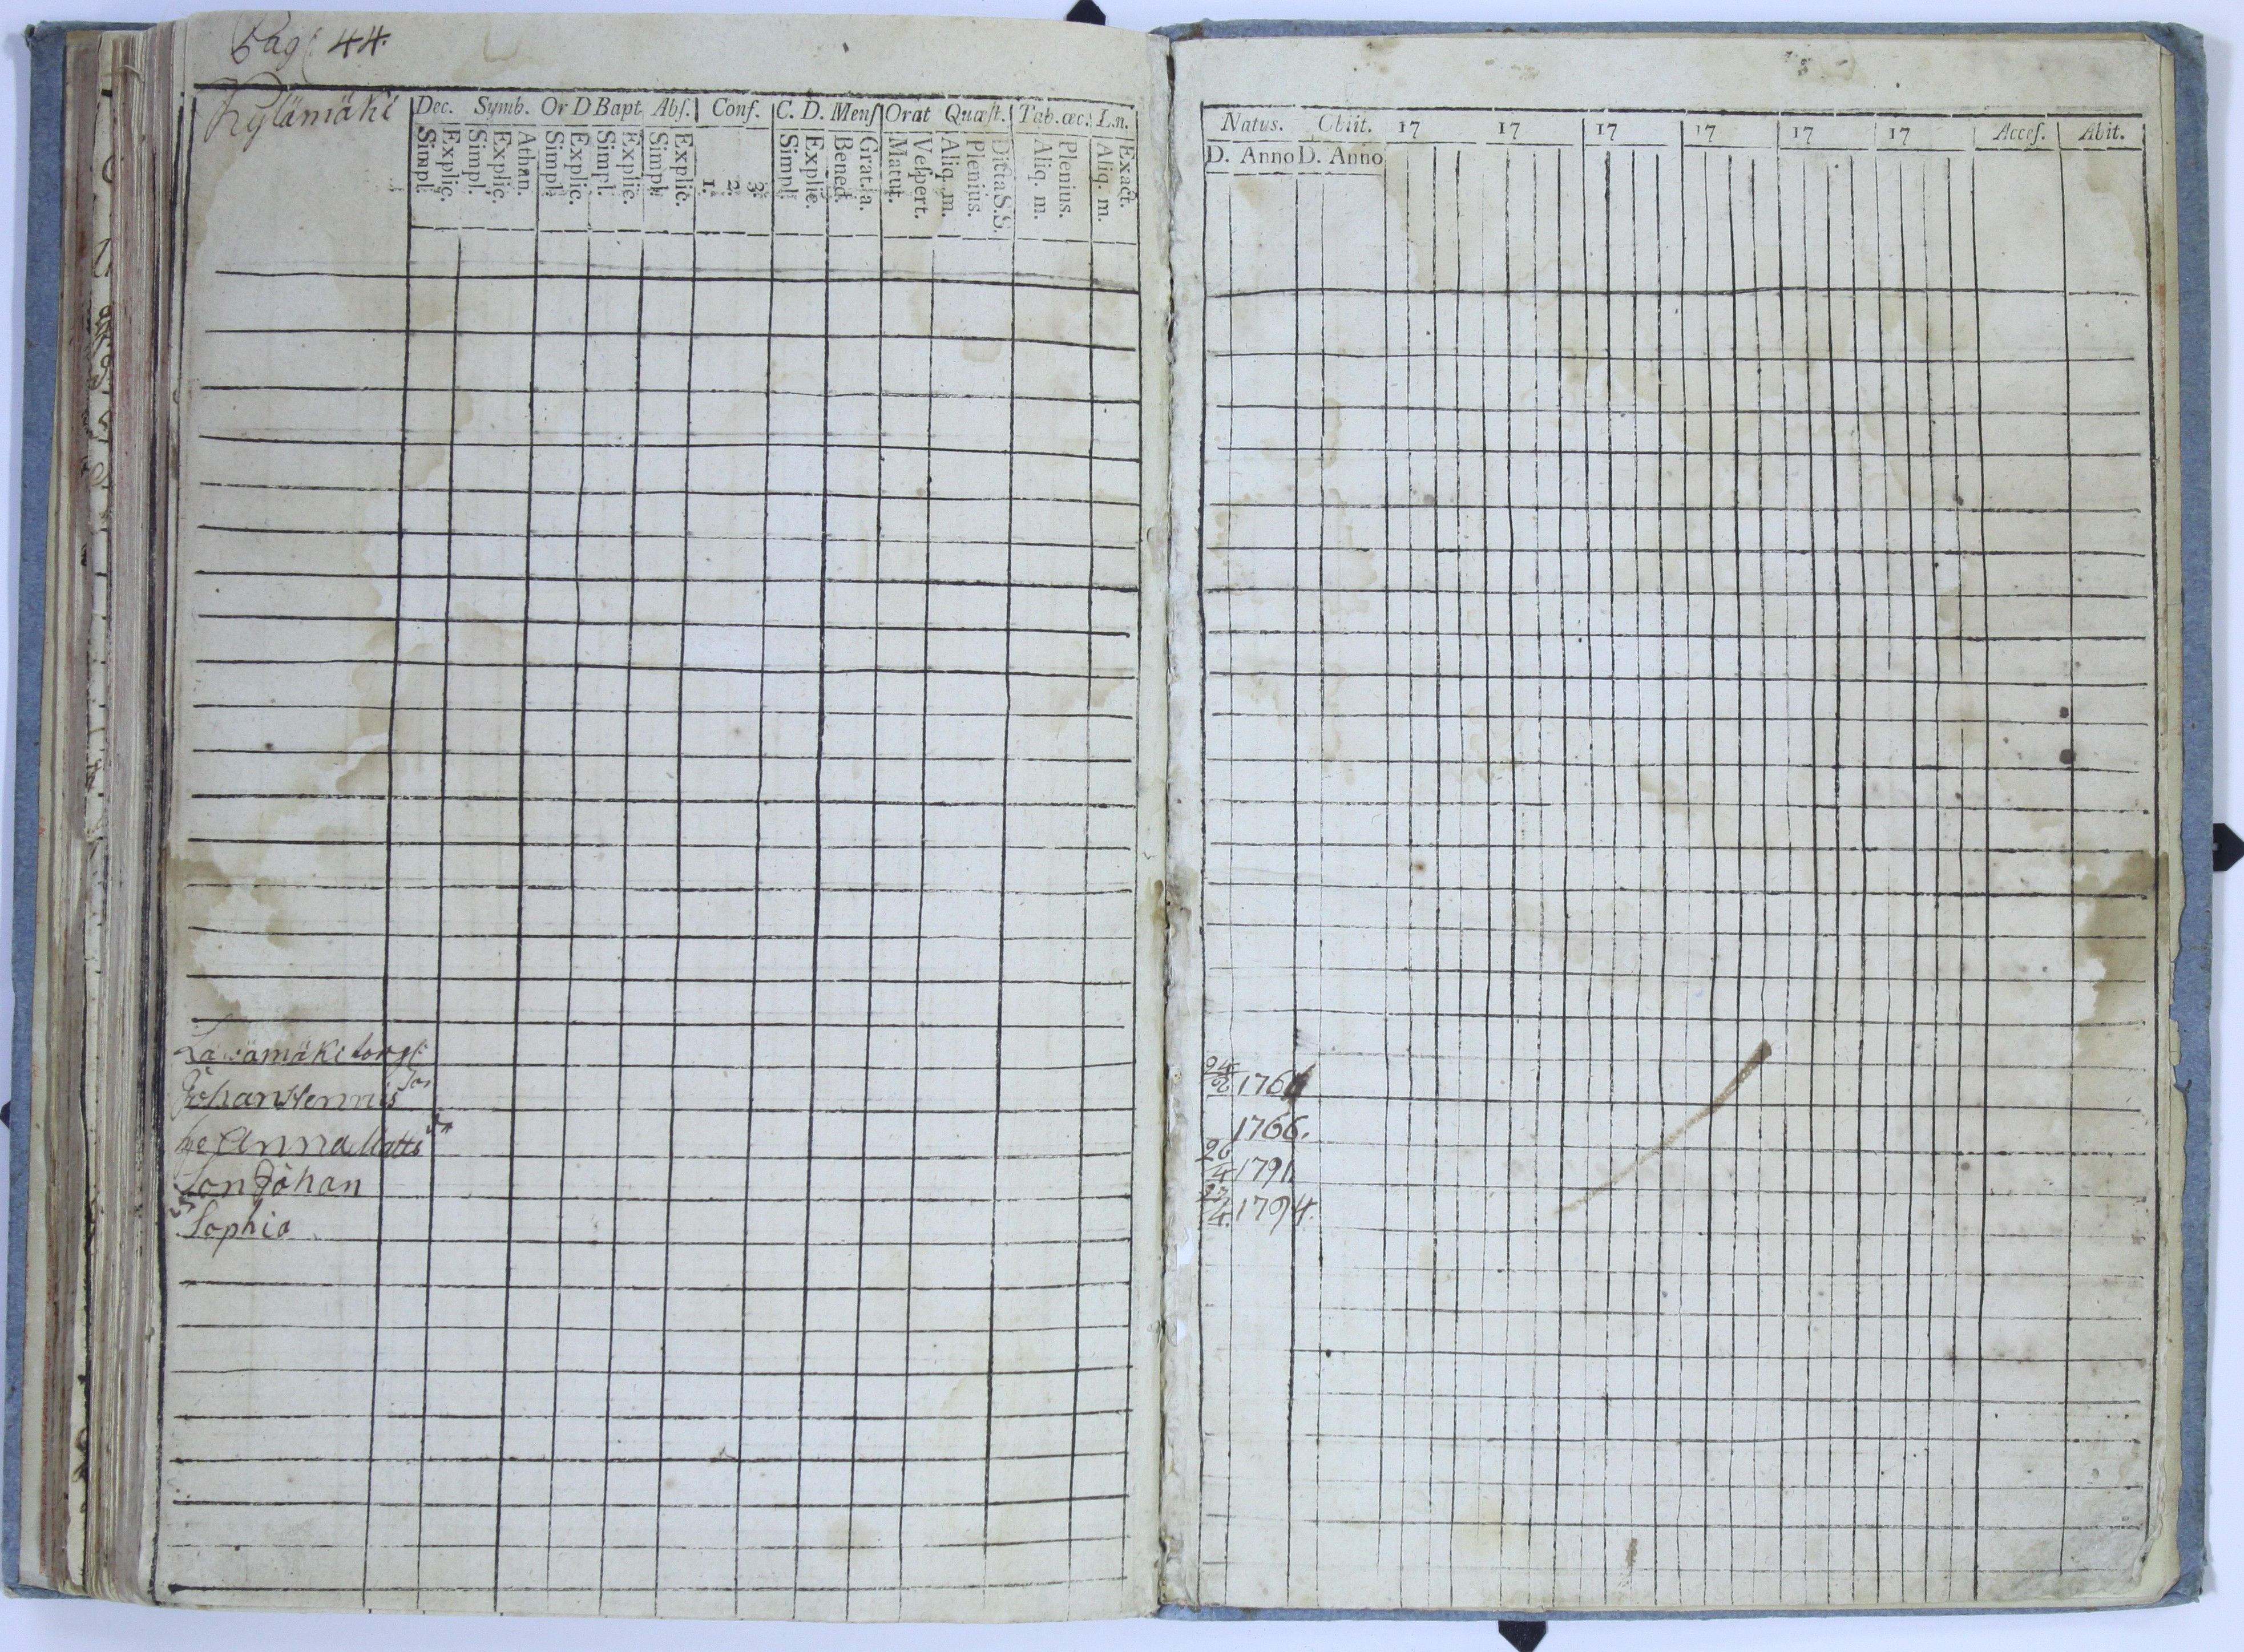 Pag: 44.
Kylämäki
Dec. Symb. Or D Bapt Abſ. Conf. C. D. Menſ Orat Quæſt. Tab. œc. L.n.
Simpl. Explic. Simpl. Explic. Athan. Simpl. Explic. Simpl. Explic. Simpl. Explic. 1. 2. 3. Simpl. Explic. Bened. Grat. a. Matut. Veſpert. Aliq. m. Plenius. Dicta S.S. Aliq. m. Plenius. Aliq. m. Exact.
Johan Henrics
Anna Matts
Son Johan
Sophia
Natus. Obiit. 17 17 17 17 17 17 Acceſ. Abit.
D. Anno D. Anno
1766.
26/4 1791.
1794.